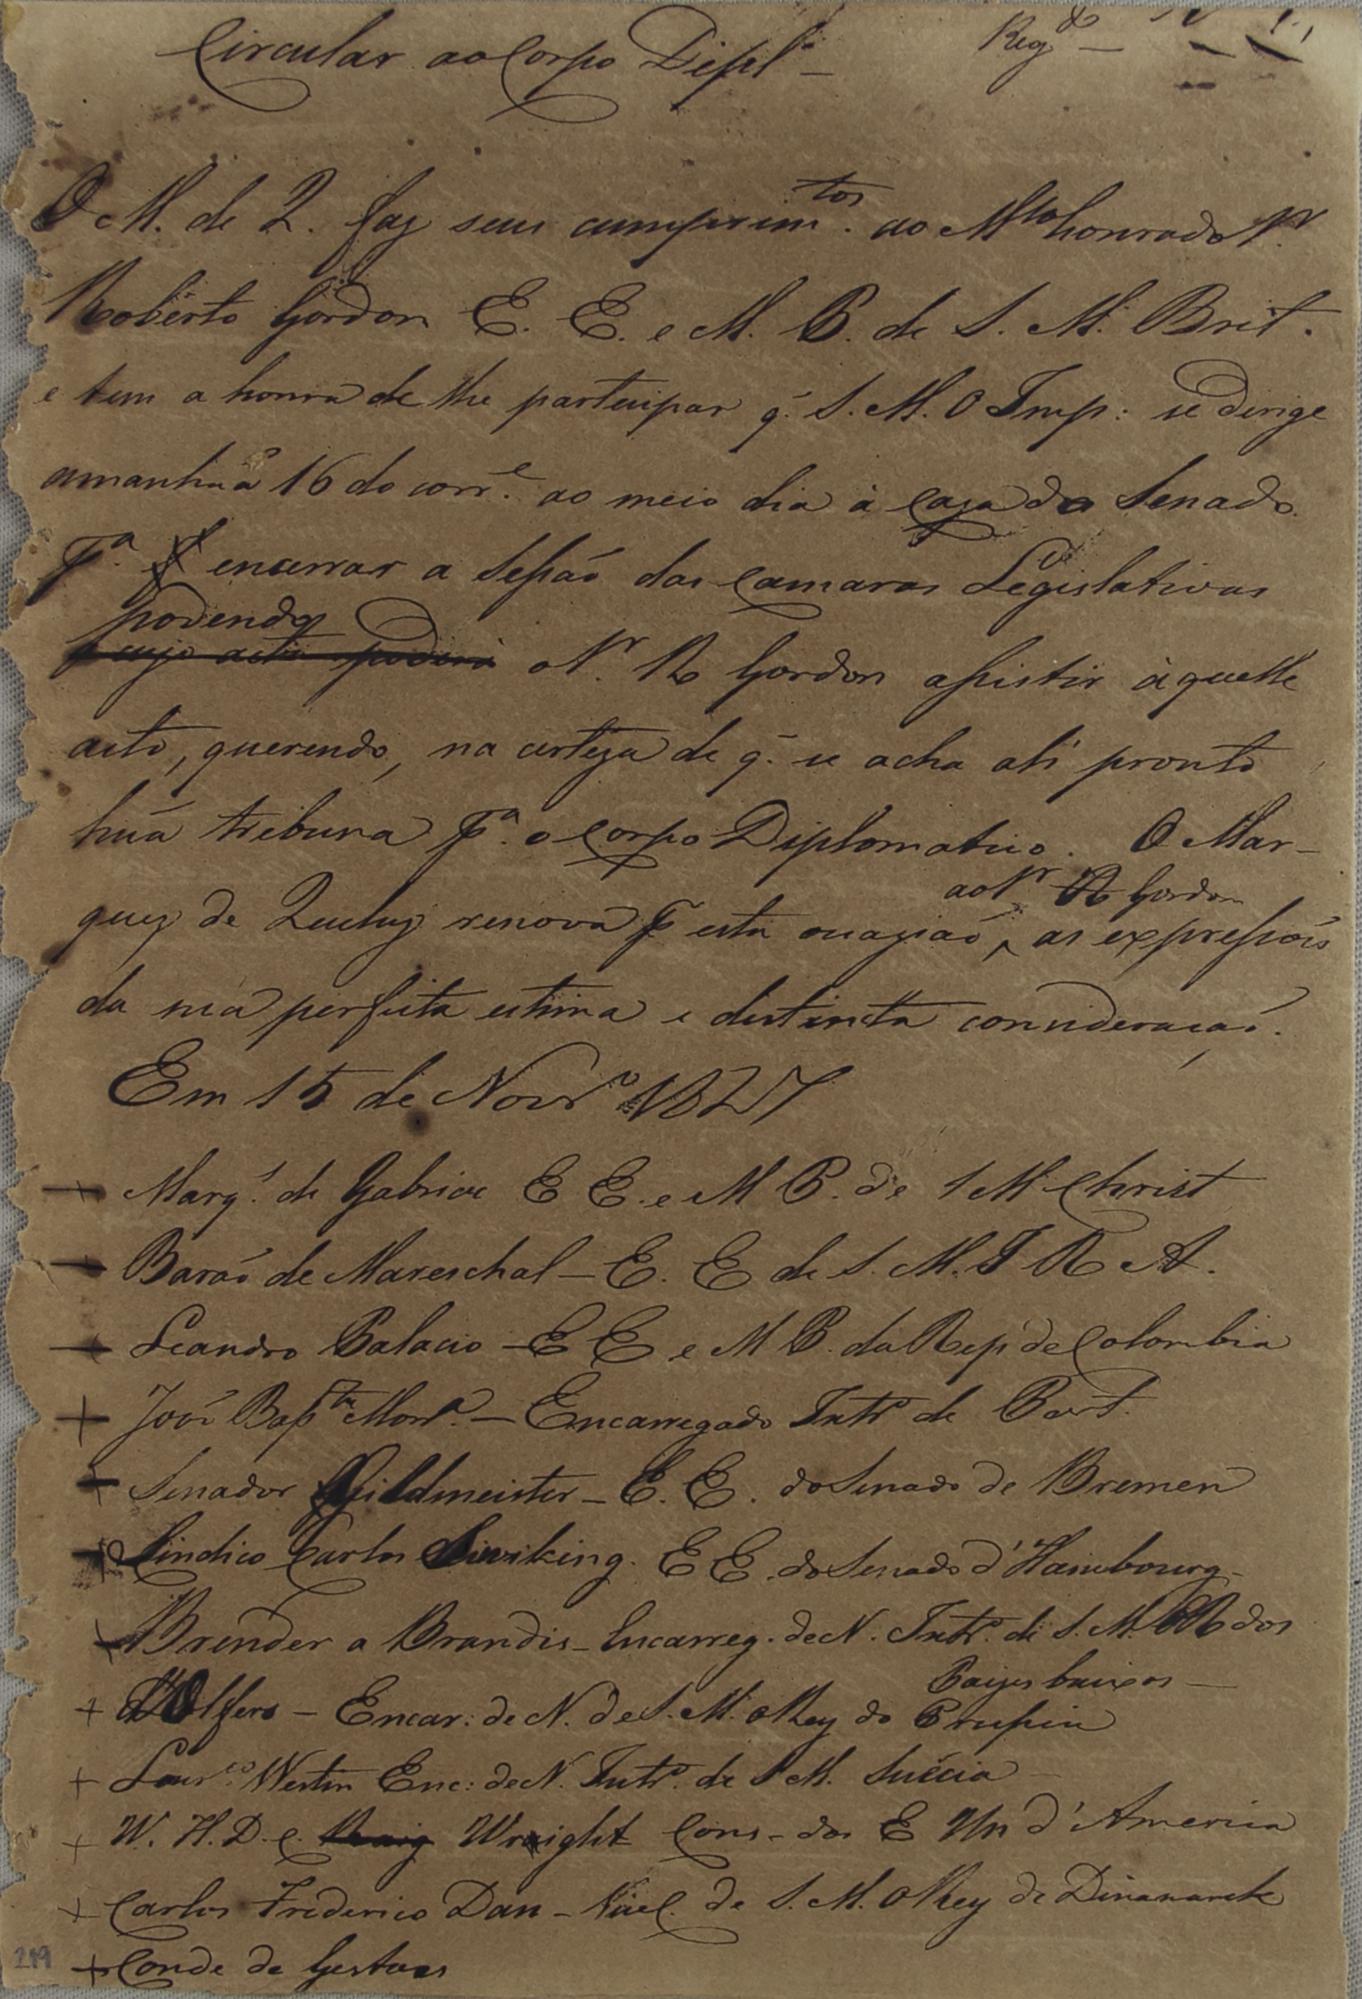 Circular ao Corpo Dipl.
Reg.do
O M. de Q. faz seus cumprim.tos ao M.to honrado Sr.
Roberto Gordon E. E. e M. P. de S. M. Brit.
e tem a honra de lhe participar q. S. M. O Imp: se dirige
amanhãa 16 do corr.e ao meio dia à Caza do Senado
P.a encerrar a Sessaó das Camaras Legislativas
podendo
cujo acto poderá o Sr. R Gordon assistir àquelle
acto, querendo, na certeza de q. se acha ali prompto
huã tribuna p.a o Corpo Diplomatico. O Mar-
ao Sr R Gordon
quez de Queluz renova p esta occaziaó, as expressoẽs
da sua perfeita estima e distincta consideraçaó.
Em 15 de Novr.o 1827
+ Marq.s de Gabriac E E. e M P. de S M Christ
+ Baraó de Mareschal - E. E de S. M. I R A.
+ Leandro Palacio - E E e M P. da Rep de Colombia
+ Joaó Bap.ta Mor.a - Encarregado Intr.o de Port.
+ Senador Gildmeister - E. E. do Senado de Bremen
+ Sindico Carlos Siviking. E E. do Senado d'Hambourg
+ Brender a Brandis - Encarreg. de N. Intr.o de S. M. ElR dos
Paizes baixos
+ Olfers - Encar: de N. de S. M. o Rey da Prussia
+ Lour.co Westin Enc: de N. Intr.o de S M. Suécia
+ W. H. D. C. Wright Cons - dos E Un d'America
+ Carlos Frederico Dan - de S. M. o Rey de Dinamarck
+ Conde de Gestas
219